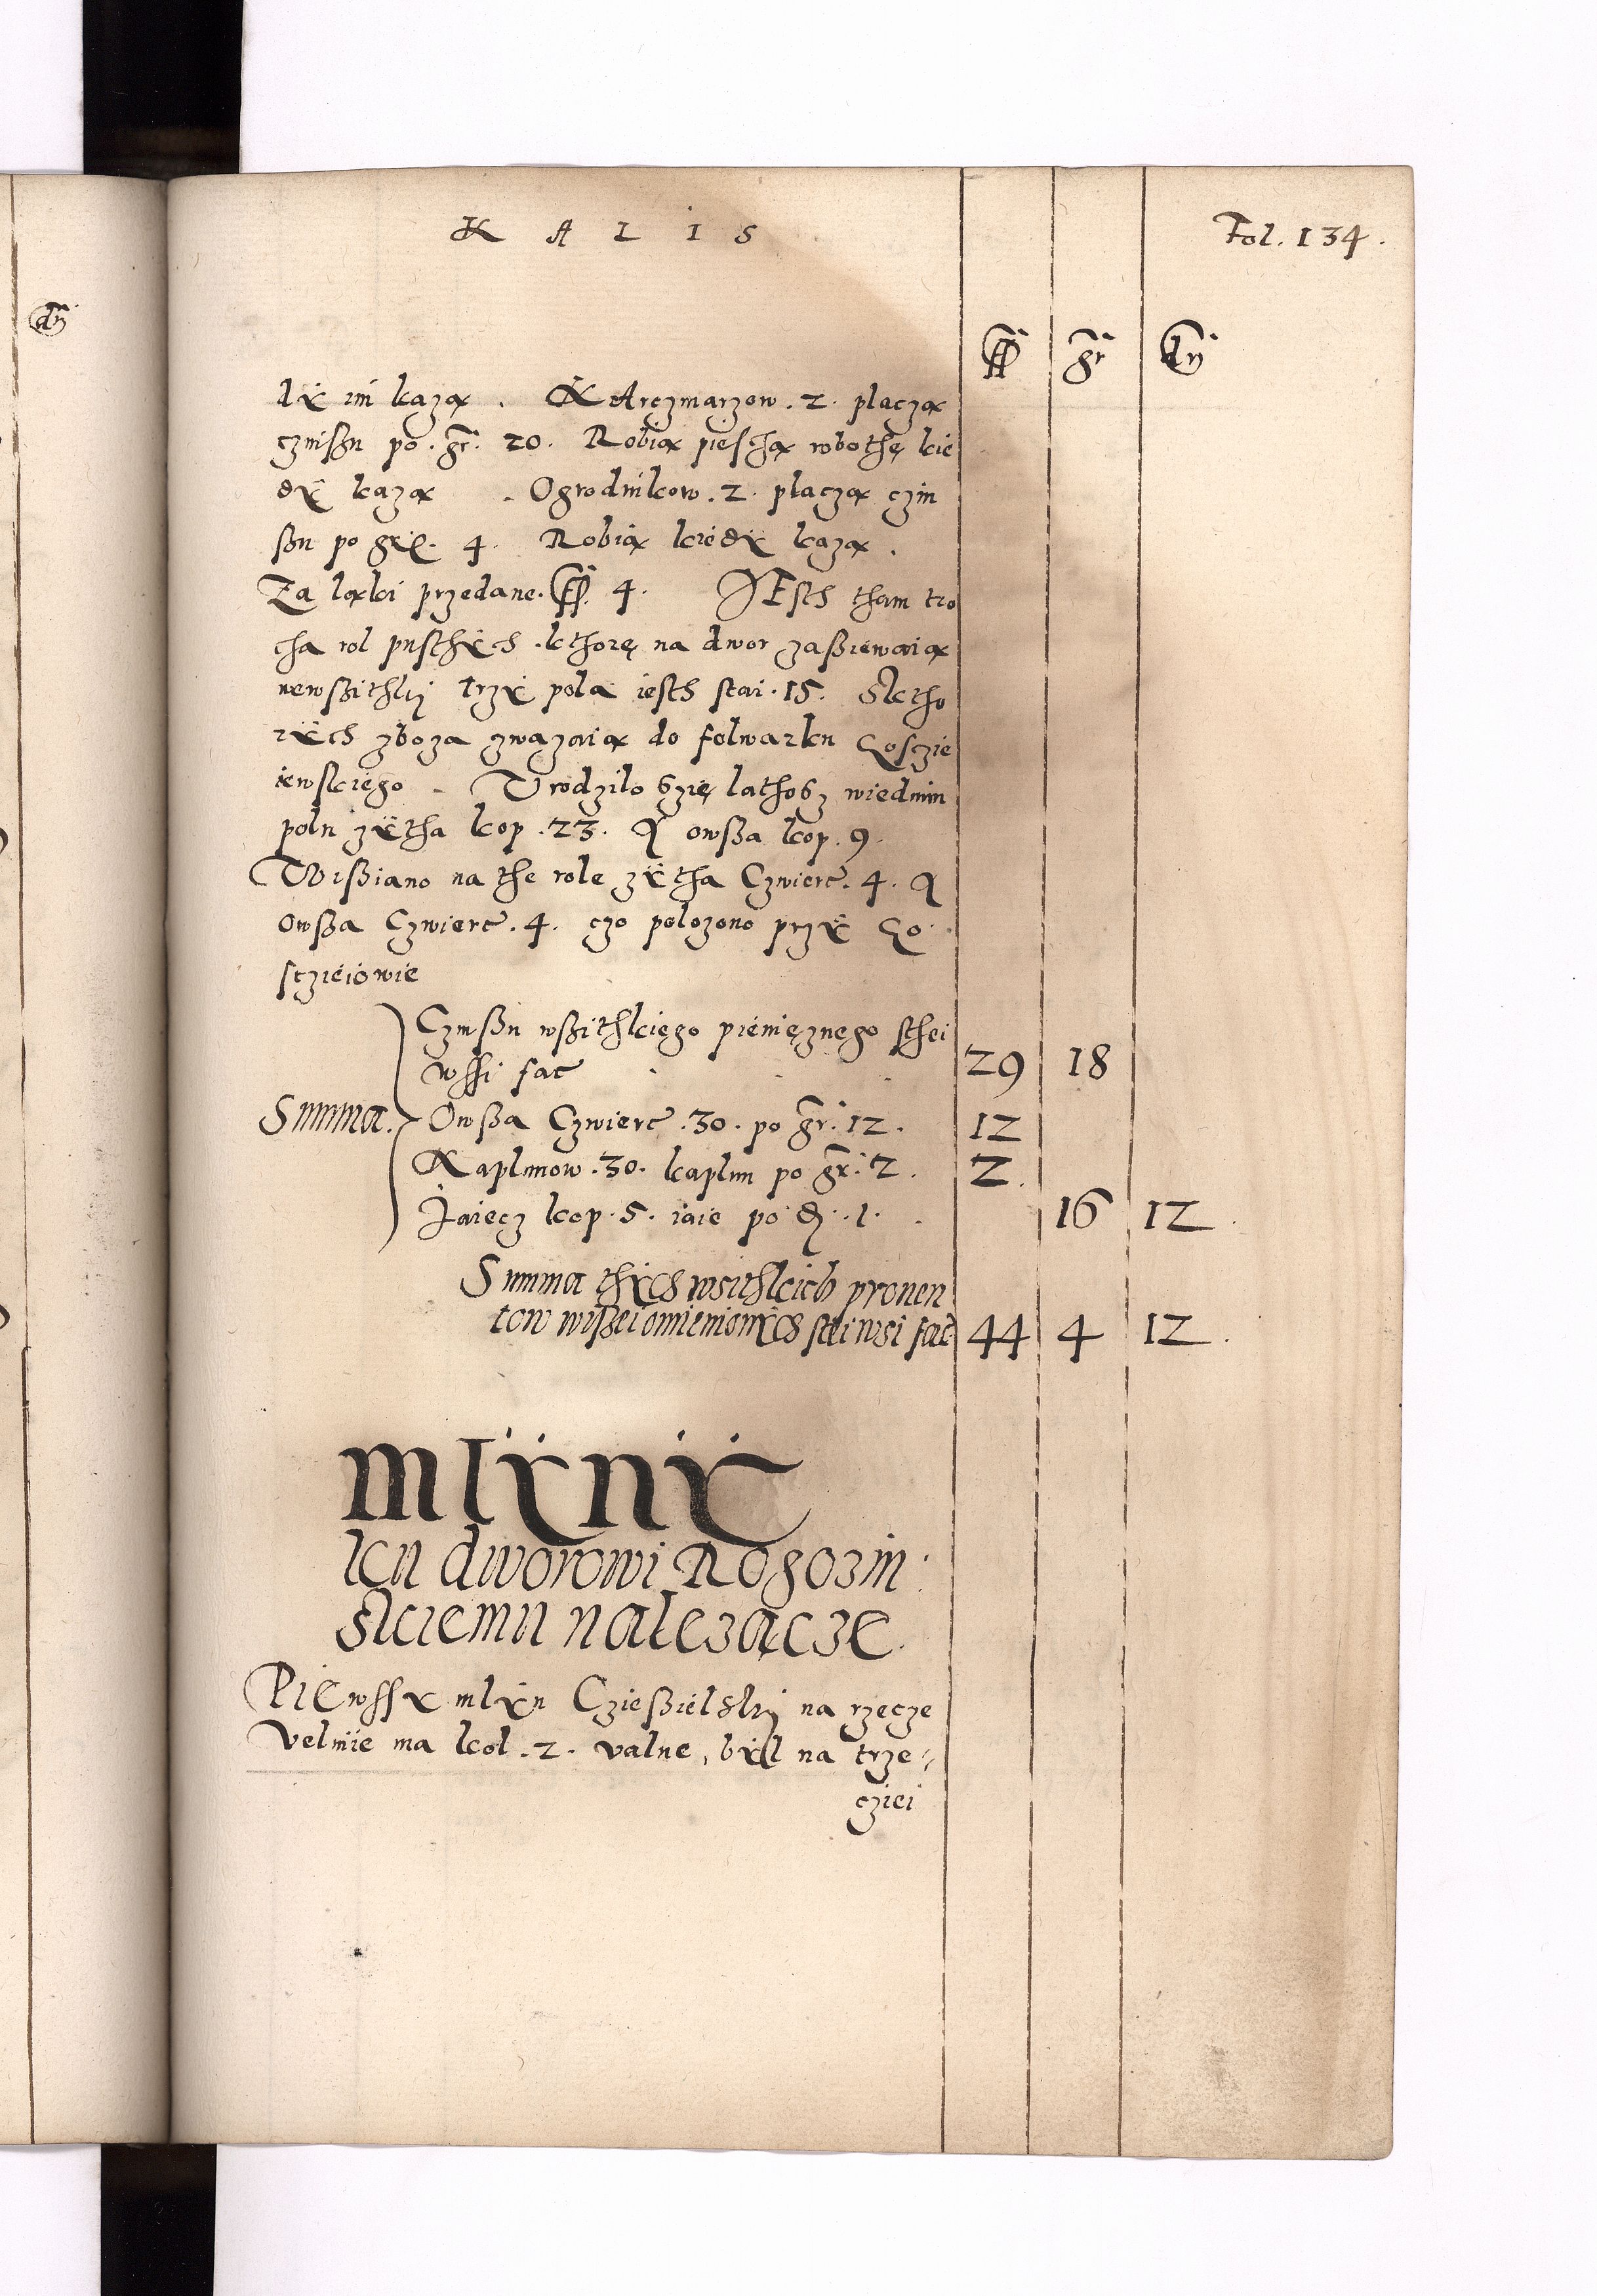 K A L I S
Fol. 134.
dn̄
fl gr dn̄
dÿ im kazą. KArczmarzow. 2. płaczą
czinssu po. gr. 20. Robią pieschą robothę kie
dÿ kazą. Ogrodnikow. 2. płaczą czin
ssu po gr. 4. Robią kiedÿ kazą.
Za łąki przedane. fl. 4. JEsth tham tro
cha rol pusthÿch. kthorę na dwor zassiewaią
wewssithkij trzÿ pola iesth stai. 15. Sktho
rÿch zboza zwązaią do folwarku Gosczie
iewskiego. Vrodziło szię lathosz wiednim
polu zÿtha kop. 23. A owssa kop. 9.
Wissiano na the role zÿtha Czwiert. 4. A
Owssa Czwiert. 4. czo polozono przÿ Go
scziéiowie
Czinssu wssithkiego pieniężnego sthei
wssi fac 29 18
Summa. Owssa Czwiert. 30. po gr. 12. 12
Kapłunow. 30. kapłun po gr. 2. 2.
Jaiecz kop. 5. iaie po d. 1. 16 12.
Summa thÿch wsithkich prouen
tow wisszei omienionÿch stei wsi fac 44 4 12.
młÿnÿ
ku dworowi Rogozin
skiemu należącze.
PIErwssÿ młÿn Cziessielskij na rzecze
Velnie ma kol. 2. valne, bÿł na trze
cziei